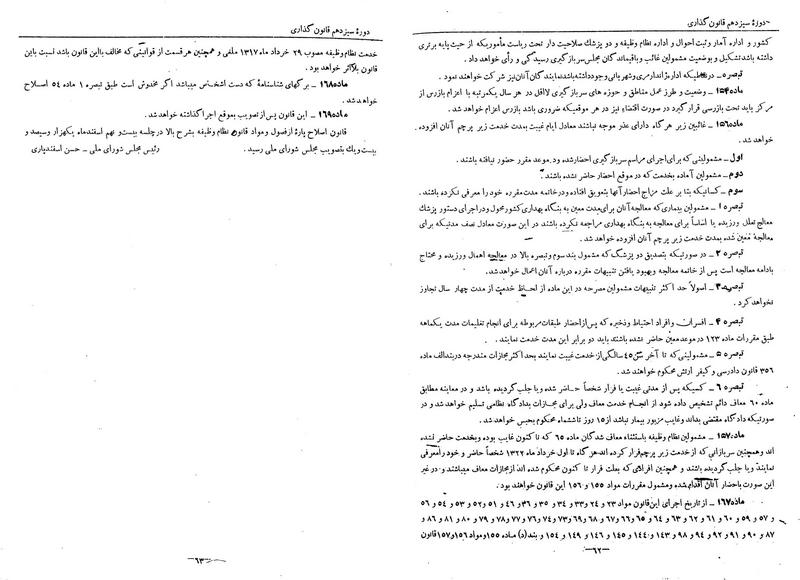 دورهٔ سیزدهم قانون گذاری
کشور و اداره آمار و ثبت احوال و اداره نظام وظیفه و دو پزشک صلاحیت دار تحت ریاست مأموریکه از حیث پایه برتری
داشته باشد تشکیل و بوضعیت مشمولین غائب و باقیماندگان مجلس سربازگیری رسیدگی و رأی خواهد داد .
تبصره ۵ – در نقاطیکه اداره ژاندارمری و شهربانی وجود داشته باشد نمایندگان آنان نیز شرکت خواهند نمود .
ماده ۱۵۴ – وضعیت و طرز عمل مناطق و حوزه های سربازگیری لااقل در هر سال یکمرتبه با اعزام بازرس از
مرکز باید تحت بازرسی قرار گیرد در صورت اقتضاء نیز در هر موقعیکه ضروری باشد بازرس اعزام خواهد شد .
ماده ۱۵۶ – غائبین زیر هرگاه دارای عذر موجه نباشند معادل ایام غیبت بمدت خدمت زیر پرچم آنان افزوده
خواهد شد .
اول – مشمولینی که برای اجرای مراسم سربازگیری احضار شده و در موعد مقرر حضور نیافته باشند .
دوم – مشمولین آماده بخدمت که در موقع احضار حاضر نشده باشند .
سوم – کسانیکه بنا بر علت مزاج احضار آنها بتعویق افتاده و در خاتمه مدت مقرره خود را معرفی نکرده باشند .
تبصره ۱ – مشمولین بیماری که معالجه آنان برای مدت معین به بنگاه بهداری کشور محول و در اجرای دستور پزشک
معالج تعلل ورزیده یا اساساً برای معالجه به بنگاه بهداری مراجعه نکرده باشند در این صورت معادل نصف مدتیکه برای
معالجهٔ معین شده بمدت خدمت زیر پرچم آنان افزوده خواهد شد .
تبصره ۲ – در صورتیکه بتصدیق دو پزشک که مشمول بند سوم و تبصره بالا در معالجه اهمال ورزیده و محتاج
بادامه معالجه است پس از خاتمه معالجه و بهبود یافتن تنبیهات مقرره درباره آنان اعمال خواهد شد .
تبصره ۳ – اصولاً حد اکثر تنبیهات مشمولین مصرحه در این ماده از لحاظ خدمت از مدت چهار سال تجاوز
نخواهد کرد .
تبصره ۴ – افسران و افراد احتیاط و ذخیره که پس از احضار طبقات مربوطه برای انجام تعلیمات مدت یکماهه
طبق مقررات ماده ۱۲۳ در موعد معین حاضر نشده باشند باید دو برابر این مدت خدمت نمایند .
تبصره ۵ – مشمولینی که تا آخر سن ۴۵ سالگی از خدمت غیبت نمایند بحد اکثر مجازات مندرجه در بند الف ماده
۳۵۶ قانون دادرسی و کیفر ارتش محکوم خواهند شد .
تبصره ۶ – کسیکه پس از مدتی غیبت یا فرار شخصاً حاضر شده و یا جلب گردیده باشد و در معاینه مطابق
ماده ۶۰ معاف دائم تشخیص داده شود از انجام خدمت معاف ولی برای مجازات بدادگاه نظامی تسلیم خواهد شد و در
صورتیکه دادگاه مقتضی بداند و غایب مزبور بیمار نباشد از ۱۵ روز تا ششماه محکوم بحبس خواهد شد .
ماده ۱۵۷ – مشمولین نظام وظیفه باستثناء معاف شدگان ماده ۶۵ که تا کنون غایب بوده و بخدمت حاضر نشده
اند و همچنین سربازانی که از خدمت زیر پرچم فرار کرده اند هر گاه تا اول خرداد ماه ۱۳۲۲ شخصاً حاضر و خود را معرفی
نمایند و یا جلب گردیده باشند و همچنین افرادی که بعلت فرار تا کنون محکوم شده اند از مجازات معاف میباشند و در غیر
این صورت باحضار آنان اقدام شده و مشمول مقررات مواد ۱۵۵ و ۱۵۶ این قانون خواهند بود .
ماده ۱۶۷ – از تاریخ اجرای این قانون مواد ۲۳ و ۲۴ و ۳۳ و ۳۴ و ۳۵ و ۳۶ و ۴۶ و ۵۱ و ۵۲ و ۵۳ و ۵۴ و ۵۶
و ۵۷ و ۵۹ و ۶۰ و ۶۱ و ۶۲ و ۶۳ و ۶۴ و ۶۵ و ۶۶ و ۶۷ و ۶۸ و ۶۹ و ۷۳ و ۷۴ و ۷۶ و ۷۷ و ۷۸ و ۷۹ و ۸۰ و ۸۱ و ۸۶ و
۸۷ و ۹۰ و ۹۱ و ۹۲ و ۹۴ و ۹۸ و ۱۴۳ و ۱۴۴ و ۱۴۵ و ۱۴۶ و ۱۴۹ و ۱۵۴ و بند (د) ماده ۱۵۵ و مواد ۱۵۶ و ۱۵۷ قانون
–۶۲–
دورهٔ سیزدهم قانون گذاری
خدمت نظام وظیفه مصوب ۲۹ خرداد ماه ۱۳۱۷ ملغی و همچنین هر قسمت از قوانینی که مخالف با این قانون باشد نسبت باین
قانون بلااثر خواهد بود .
ماده ۱۶۸ – برگهای شناسنامهٔ که دست اشخاص میباشد اگر مخدوش است طبق تبصره ۱ ماده ۵۴ اصلاح
خواهد شد .
ماده ۱۶۹ – این قانون پس از تصویب بموقع اجرا گذاشته خواهد شد .
قانون اصلاح پارهٔ از فصول و مواد قانون نظام وظیفه بشرح بالا در جلسه بیست و نهم اسفند ماه یکهزار و سیصد و
بیست و یک بتصویب مجلس شورای ملی رسید . رئیس مجلس شورای ملی – حسن اسفندیاری
–۶۳–